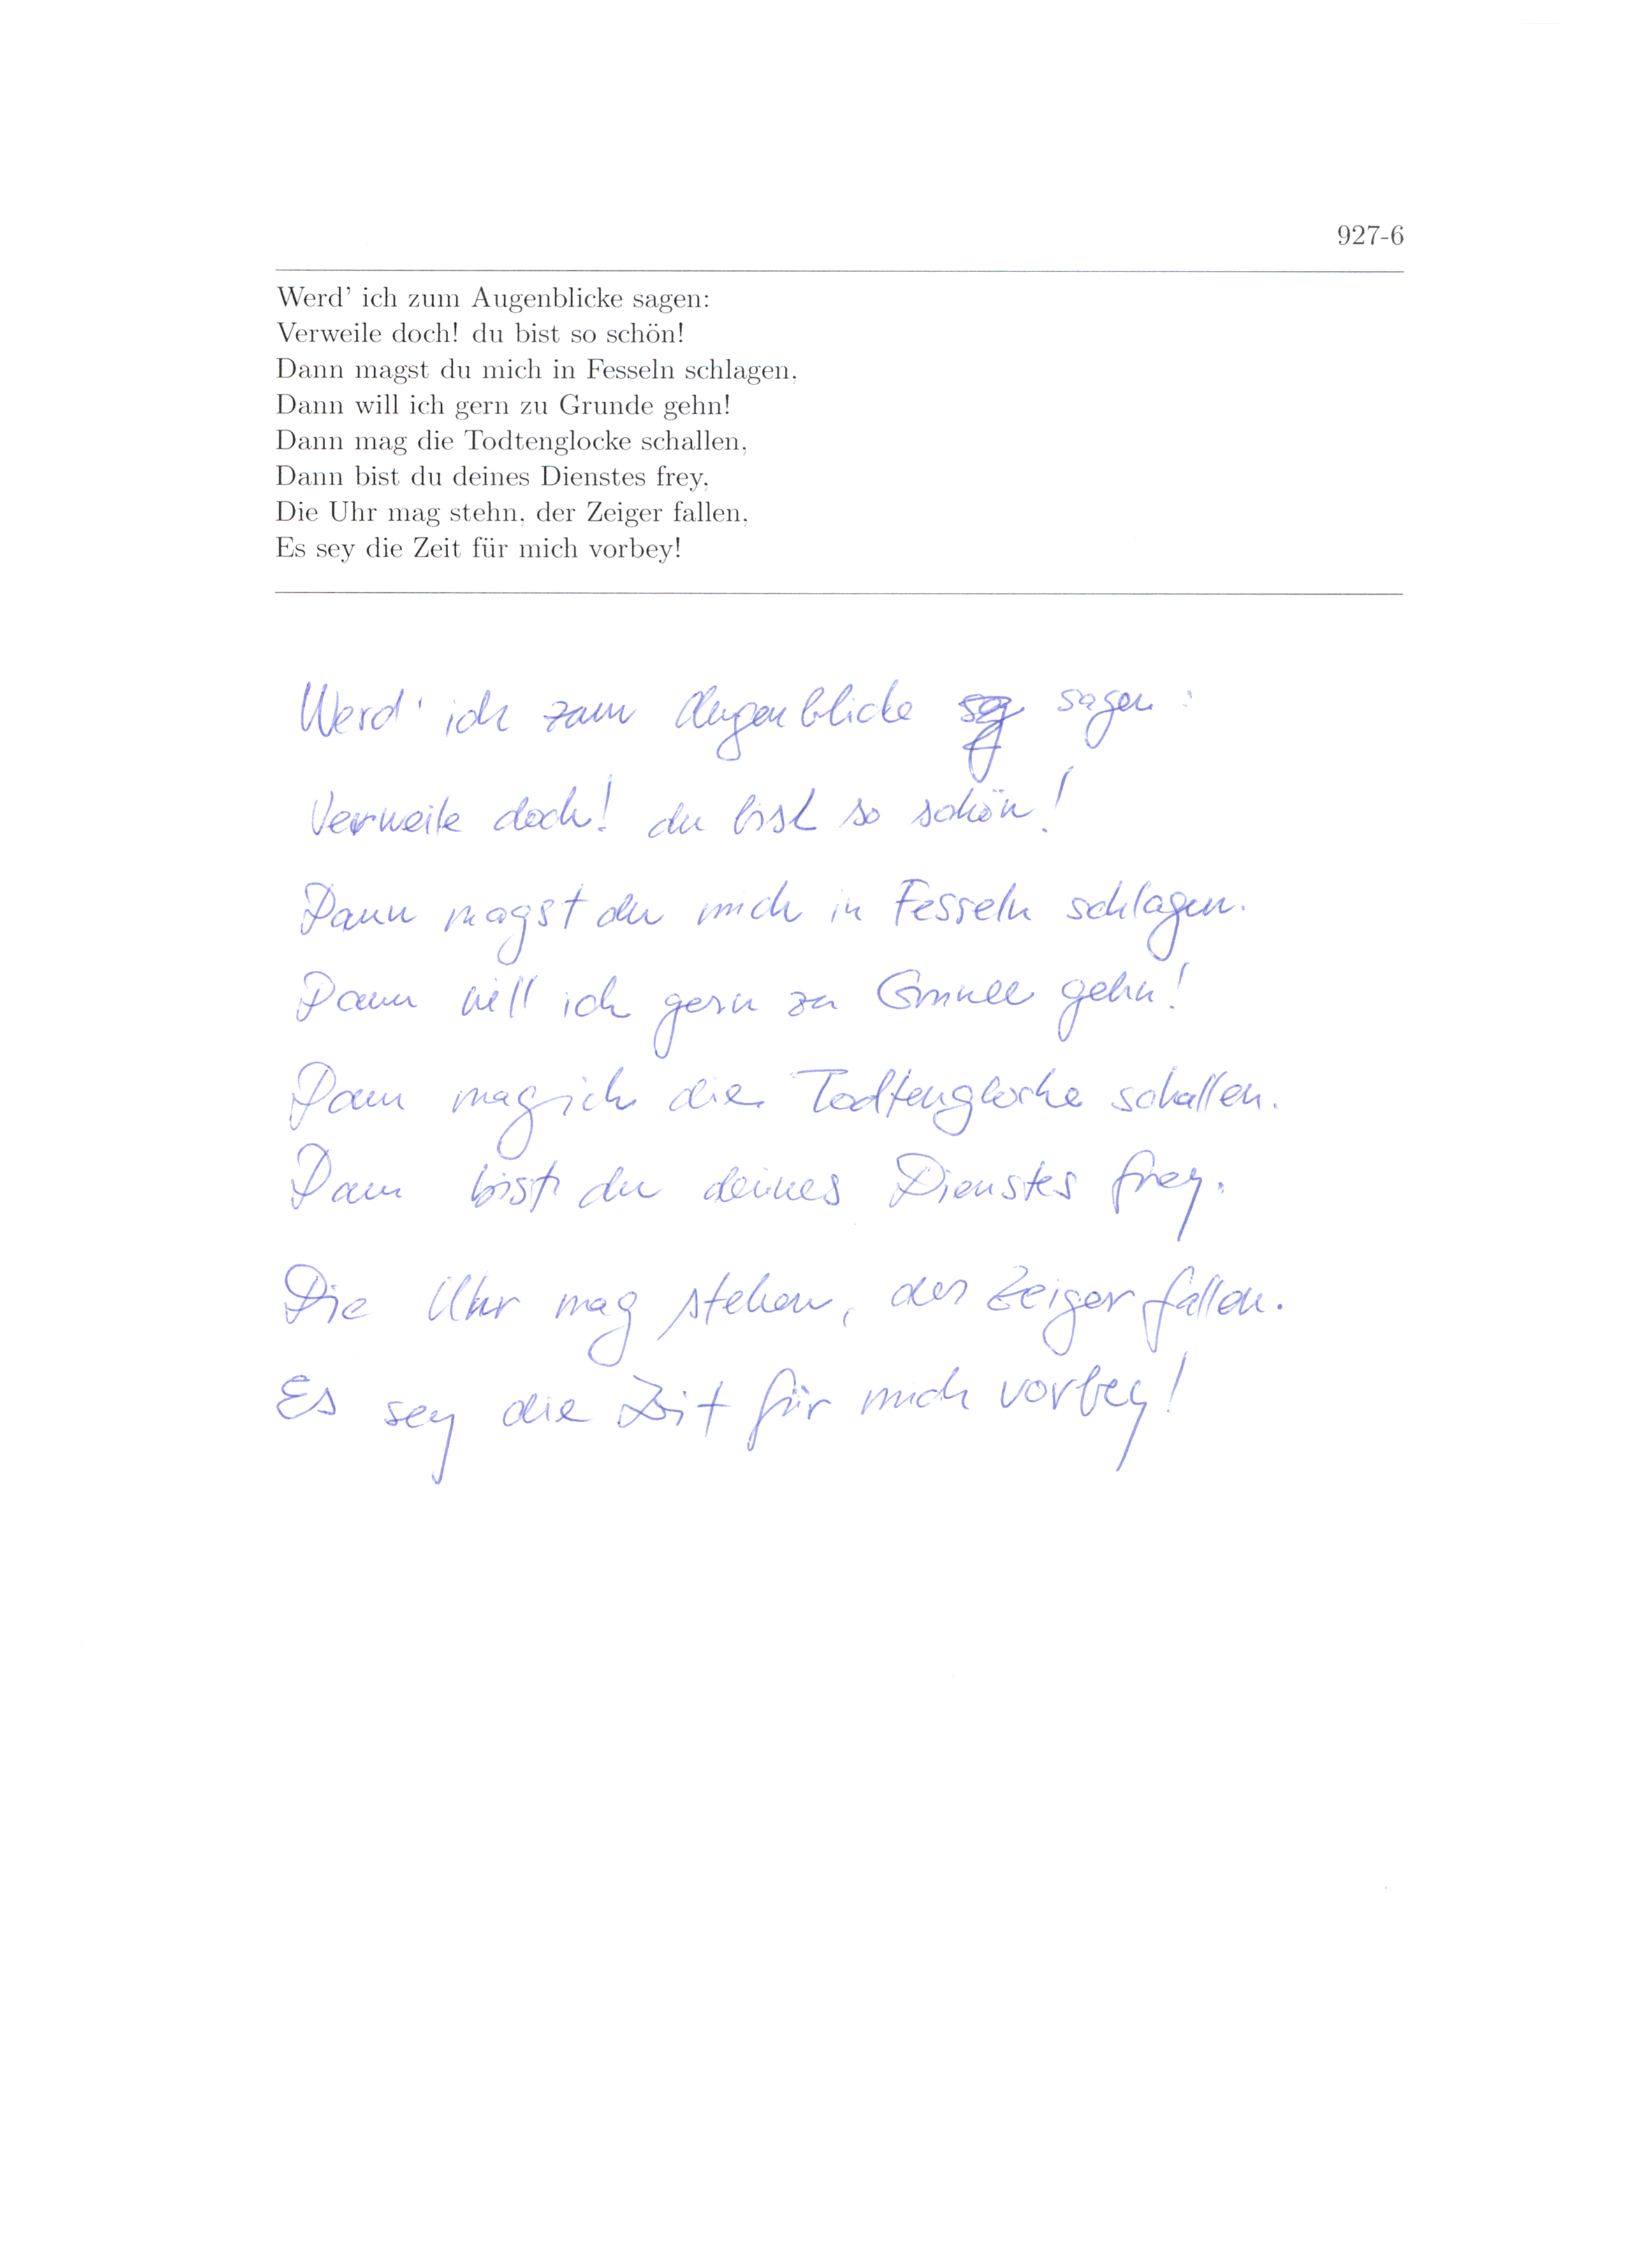 927-6
Werd' ich zum Augenblicke sagen:
Verweile doch! du bist so schön!
Dann magst du mich in Fesseln schlagen,
Dann will ich gern zu Grunde gehn!
Dann mag die Todtenglocke schallen,
Dann bist du deines Dienstes frey,
Die Uhr mag stehn, der Zeiger fallen,
Es sey die Zeit für mich vorbey!
Werd' ich zum Augenblicke sagen:
Verweile doch! du bist so schön!
Dann magst du mich in Fesseln schlagen.
Dann will ich gern zu Grunde gehn!
Dann mag ich die Todtenglocke schallen.
Dann bist du deines Dienstes frey.
Die Uhr mag stehen, der Zeiger fallen.
Es sey die Zeit für mich vorbey!